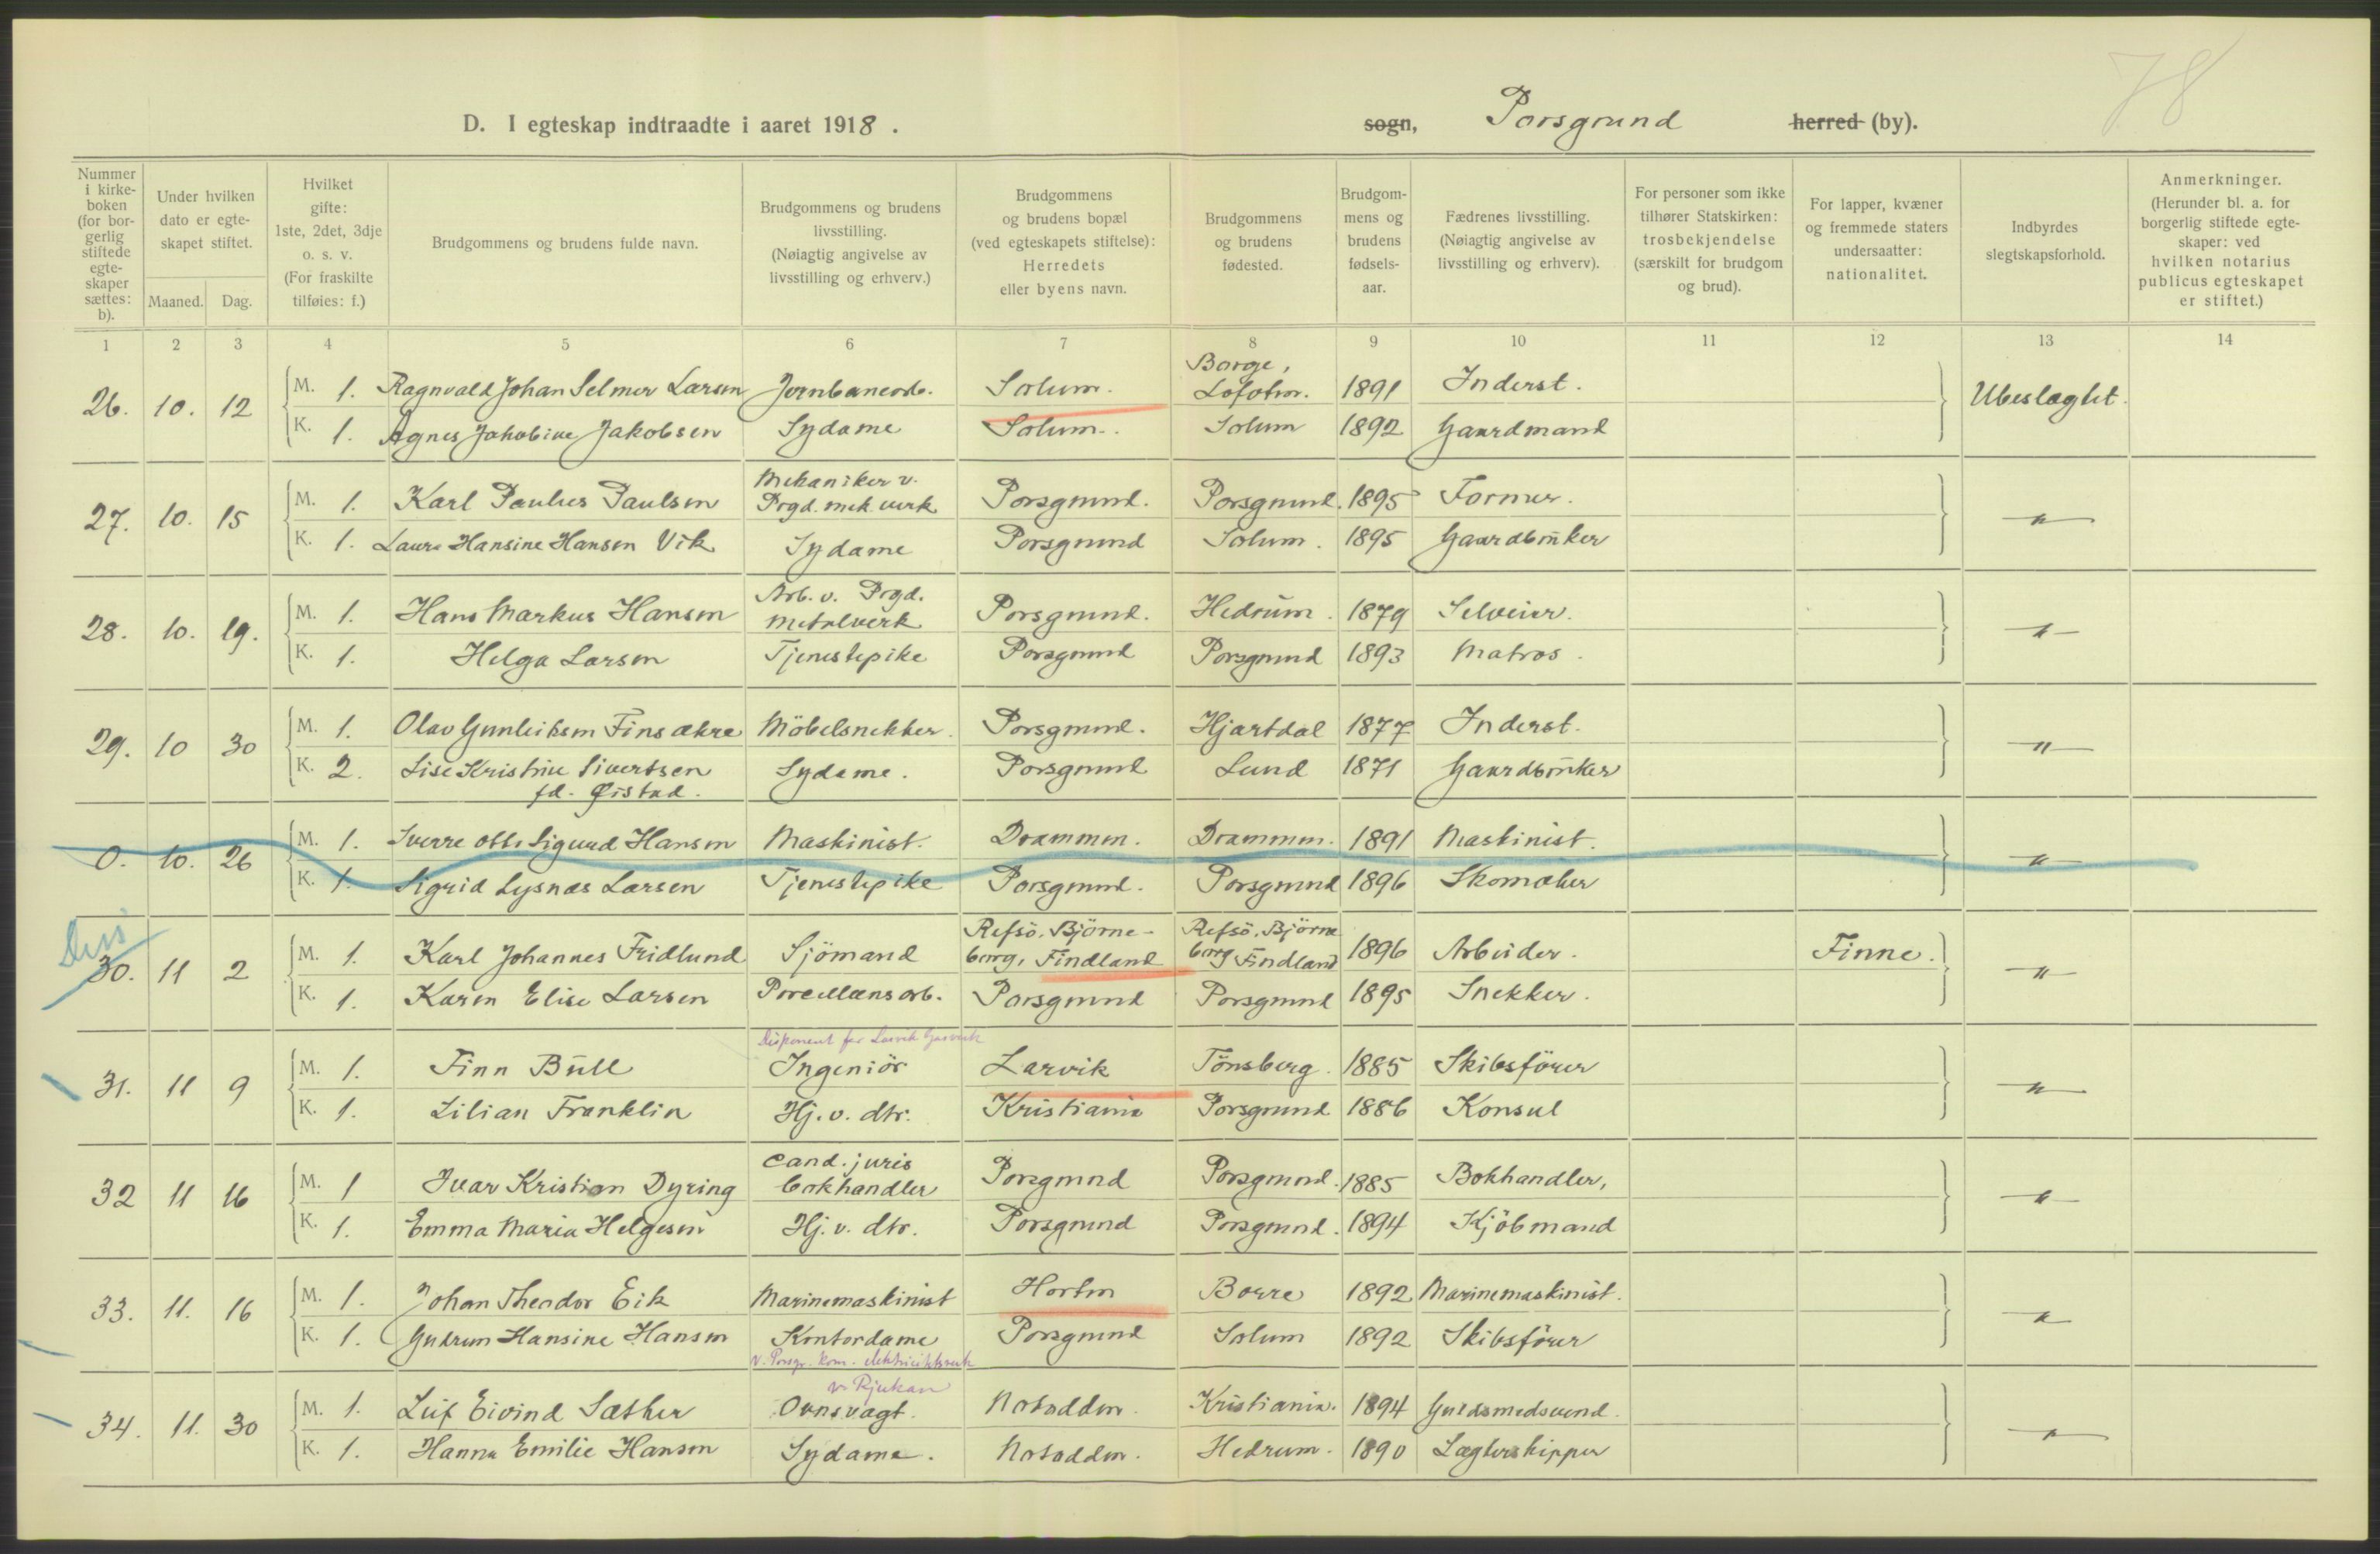 78
D. I egteskap indtraadte i aaret 1918. sogn, Porsgrund herred (by).
Nummer i kirkeboken (for borgerlig stiftede egteskaper sættes: b).
Under hvilken dato er egteskapet stiftet.
Maaned. Dag.
Hvilket gifte: 1ste, 2det, 3dje o. s. v. (For fraskilte tilføies: f.)
Brudgommens og brudens fulde navn.
Brudgommens og brudens livsstilling. (Nøiagtig angivelse av livsstilling og erhverv.)
Brudgommens og brudens bopæl (ved egteskapets stiftelse): Herredets eller byens navn.
Brudgommens og brudens fødested.
Brudgommens og brudens fødselsaar.
Fædrenes livsstilling. (Nøiagtig angivelse av livsstilling og erhverv).
For personer som ikke tilhører Statskirken: trosbekjendelse (særskilt for brudgom og brud).
For lapper, kvæner og fremmede staters undersaatter: nationalitet.
Indbyrdes slegtskapsforhold.
Anmerkninger. (Herunder bl. a. for borgerlig stiftede egteskaper: ved hvilken notarius publicus egteskapet er stiftet.)
1 2 3 4 5 6 7 8 9 10 11 12 13 14
26. 10. 12 M. 1. Ragnvald Johan Selmer Larsen Jernbanearb. Solum. Borge, Lofoten. 1891 Inderst. Ubeslægtet.
K. 1. Agnes Jakobine Jakobsen Sydame Solum. Solum 1892 Gaardmand
27. 10. 15 M. 1. Karl Paulus Paulsen Mekaniker v. Prgd. mek. verk Porsgrund. Porsgrund. 1895 Former. "
K. 1. Laura Hansine Hansen Vik Sydame Porsgrund Solum. 1895 Gaardbruker
28. 10. 19. M. 1. Hans Markus Hansen Arb. v. Prgd. metalverk Porsgrund. Hedrum. 1879 Selveier. "
K. 1. Helga Larsen Tjenestepike Porsgrund Porsgrund 1893 Matros.
29. 10 30 M. 1. Olav Gunleiksen Finsækre Möbelsnekker. Porsgrund. Hjartdal 1877 Inderst. "
K. 2. Lise Kristine Sivertsen fd. Øistad. Sydame. Porsgrund Lund 1871 Gaardbruker
0. 10. 26 M. 1. Sverre Otto Sigurd Hansen Maskinist. Drammen. Drammen. 1891 Maskinist. "
K. 1. Sigrid Lysnæs Larsen Tjenestepike Porsgrund. Porsgrund 1896 Skomaker
Diss
30. 11 2 M. 1. Karl Johannes Fridlund Sjömand Refsö, Björneborg, Findland Refsö, Björneborg Findland 1896 Arbeider. Finne. "
K. 1. Karen Elise Larsen Porcellænsarb. Porsgrund Porsgrund 1895 Snekker.
31. 11 9 M. 1. Finn Bull Disponent for Larvik Gasverk Ingeniör Larvik Tönsberg. 1885 Skibsförer "
K. 1. Lilian Franklin Hj. v. dtr. Kristiania Porsgrund 1886 Konsul
32 11 16 M. 1 Ivar Kristian Dyring cand. juris bokhandler Porsgrund Porsgrund. 1885 Bokhandler, "
K. 1. Emma Maria Helgesen Hj. v. dtr. Porsgrund Porsgrund. 1894 Kjöbmand
33. 11. 16 M. 1. Johan Theodor Eik Marinemaskinist Horten Borre 1892 Marinemaskinist. "
K. 1. Gudrun Hansine Hansen Kontordame v. Porsgr. kom. elektricitetsverk Porsgrund Solum 1892 Skibsförer
34. 11. 30 M. 1. Leif Eivind Sæther v. Rjukan Ovnsvagt. Notodden. Kristiania. 1894 Guldsmedsvend. "
K. 1. Hanna Emilie Hansen Sydame. Notodden. Hedrum. 1890 Lægterskipper